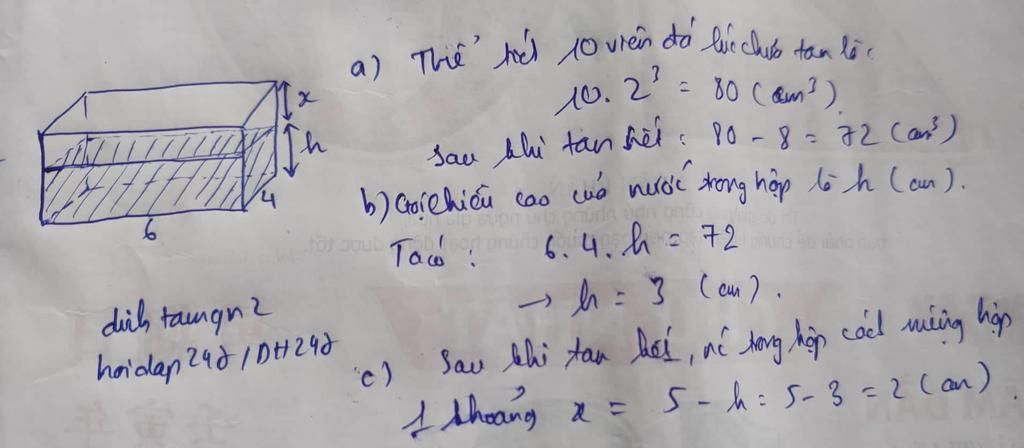 a) Thể tích 10 viên đá lúc chưa tan là:
10. 2³ = 80 (cm³)
Sau khi tan hết: 80 - 8 = 72 (cm³)
b) Gọi chiều cao của nước trong hộp là h (cm).
Ta có: 6. 4. h = 72
→ h = 3 (cm).
c) Sau khi tan hết, nc trong hộp cách miệng hộp
1 khoảng x = 5 - h = 5 - 3 = 2 (cm).
x
h
4
6
dinh tamgn2
hoidap247 / DH247